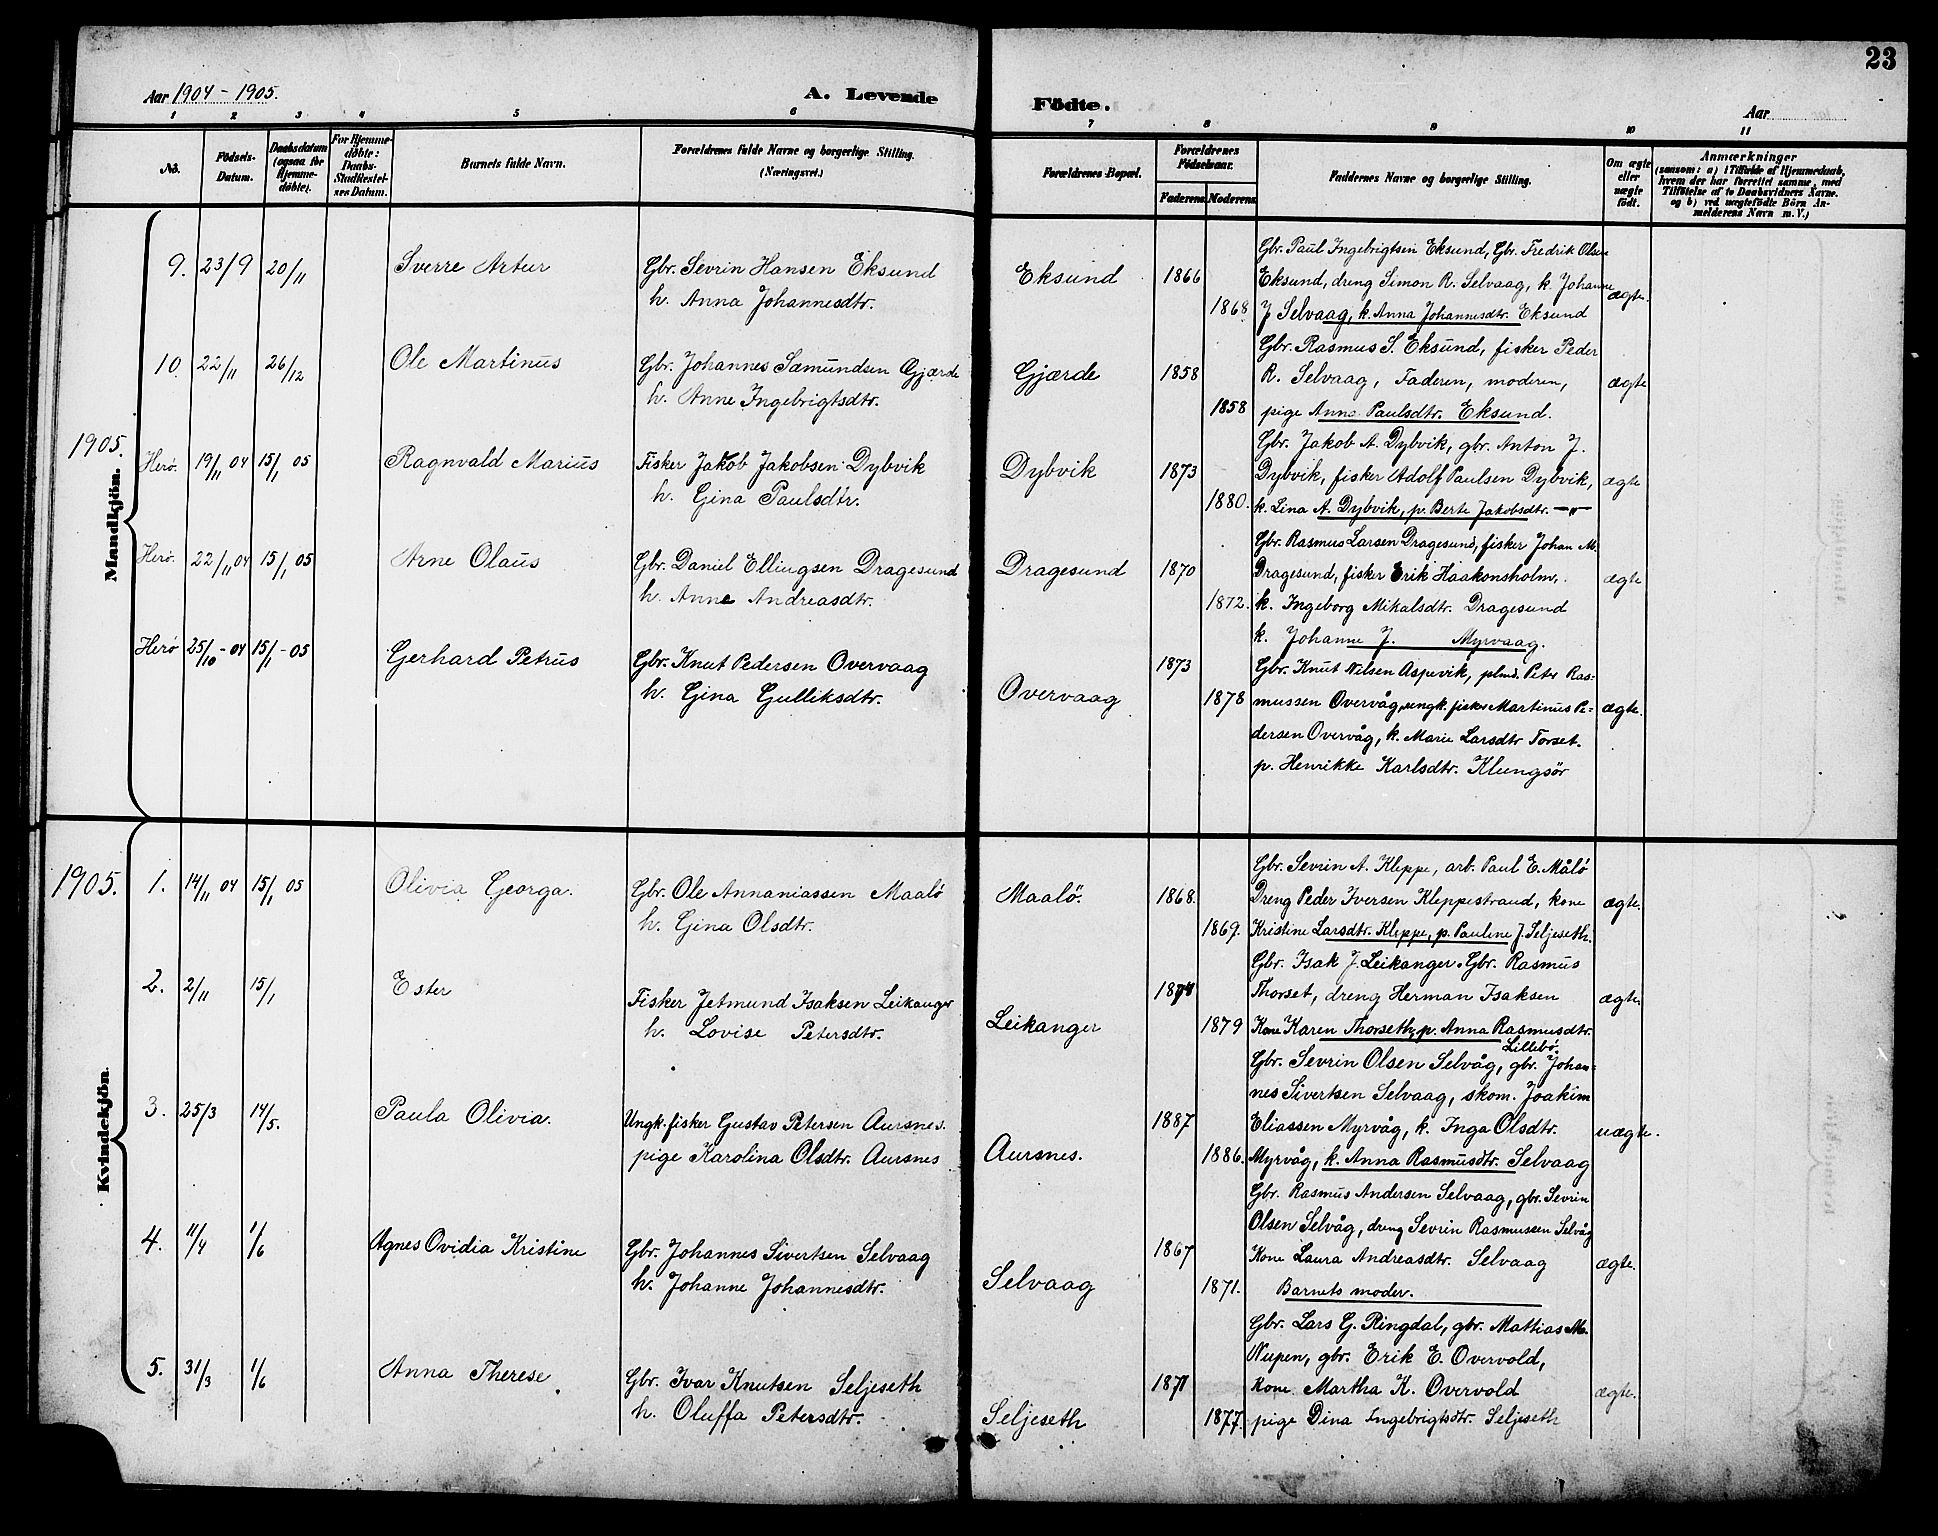 23
Aar 1904 - 1905.
A. Levende Födte.
Aar
1 2 3 4 5 6 7 8 9 10 11
No.
Födsels-Datum.
Daabsdatum (ogsaa for Hjemmedöbte).
For Hjemmedöbte: Daabs-Stadfæstelsens Datum.
Barnets fulde Navn.
Forældrenes fulde Navne og borgerlige Stilling. (Næringsvei.)
Forældrenes Bopæl.
Forældrenes Födselsaar.
Faderens Moderens
Faddernes Navne og borgerlige Stilling.
Om ægte eller uægte födt.
Anmærkninger
(saasom: a) i Tilfælde af Hjemmedaab, hvem der har forrettet samme, med Tilföielse af to Daabsvidners Navne. og b) ved uægtefödte Börn Anmelderens Navn m. V.)
Mandkjön.
9. 23/9 20/11 Sverre Artur
Gbr. Sevrin Hansen Eksund
h. Anna Johannesdtr.
Eksund 1866 1868
Gbr. Paul Ingebrigtsen Eksund, Gbr. Fredrik Olsen
Eksund, dreng Simon R. Selvaag, k. Johanne
J Selvaag, k. Anna Johannesdtr. Eksund
ægte.
10 22/11 26/12 Ole Martinus
Gbr. Johannes Samundsen Gjærde
h. Anne Ingebrigtsdtr.
Gjærde 1858 1858
Gbr. Rasmus S. Eksund, fisker Peder
R. Selvaag, Faderen, moderen,
pige Anna Paulsdtr. Eksund.
ægte
1905.
Herö. 19/11 04 15/1 05 Ragnvald Marius
Fisker Jakob Jakobsen Dybvik
h. Gina Paulsdtr.
Dybvik 1873 1880.
Gbr. Jakob A. Dybvik, gbr. Anton J.
Dybvik, fisker Adolf Paulsen Dybvik,
k. Lina A. Dybvik, p. Berte Jakobsdtr. —"—
ægte
Herö. 22/11 04 15/1 05 Arne Olaus
Gbr. Daniel Ellingsen Dragesund
h. Anne Andreasdtr.
Dragesund 1870 1872.
Gbr. Rasmus Larsen Dragesund, fisker Johan M.
Dragesund, fisker Erik Haakonsholm,
k. Ingeborg Mikalsdtr. Dragesund
k. Johanne J. Myrvaag.
ægte
Herö 25/10 - 04 15/1 - 05 Gerhard Petrus
Gbr. Knut Pedersen Overvaag
h. Gina Gulliksdtr.
Overvaag 1873 1878
Gbr. Knut Nilsen Aspevik, plmd. Peter Ras-
mussen Overvåg, ungk. fisker Martinus Pe-
dersen Overvåg, k. Marie Larsdtr Torset.
p. Henrikke Karlsdtr. Klungsör
ægte.
Kvindekjön.
1905. 1. 14/11 04 15/1 05 Olivia Georga.
Gbr. Ole Annaniassen Maalö
h. Gina Olsdtr.
Maalö. 1868. 1869.
Gbr. Sevrin A. Kleppe, arb. Paul E. Målö
Dreng Peder Iversen Kleppestrand, kone
Kristine Larsdtr. Kleppe, p. Pauline J. Seljeseth.
ægte.
2. 2/11 15/1 Ester
Fisker Jetmund Isaksen Leikanger
h. Lovise Petersdtr.
Leikanger 1874 1879
Gbr. Isak J. Leikanger. Gbr. Rasmus
Thorset, dreng Herman Isaksen
Kone Karen Thorseth, p. Anna Rasmusdtr.
Lillebö.
ægte.
3. 25/3 14/5. Paula Olivia.
Ungk. fisker Gustav Petersen Aursnes.
pige Karolina Olsdtr. Aursnes
Aursnes. 1887 1886.
Gbr. Sevrin Olsen Selvåg, gbr. Johan-
nes Sivertsen Selvaag, skom. Joakim
Eliassen Myrvåg, k. Inga Olsdtr.
Myrvåg, k. Anna Rasmusdtr. Selvaag
uægte.
4. 11/4 1/6 Agnes Ovidia Kristine
Gbr. Johannes Sivertsen Selvaag
h. Johanne Johannesdtr.
Selvaag 1867 1871.
Gbr. Rasmus Andersen Selvaag, gbr. Sevrin
Olsen Selvåg, dreng Sevrin Rasmussen Selvåg
Kone Laura Andreasdtr. Selvaag
Barnets moder.
ægte.
5. 31/3 1/6 Anna Therese
Gbr. Ivar Knutsen Seljeseth
h. Oluffa Petersdtr.
Seljeseth 1871 1877.
Gbr. Lars G. Ringdal, gbr. Mattias M.
Nupen, gbr. Erik E. Overvold,
Kone Martha K. Overvold
pige Dina Ingebrigtsdtr. Seljeseth
ægte.